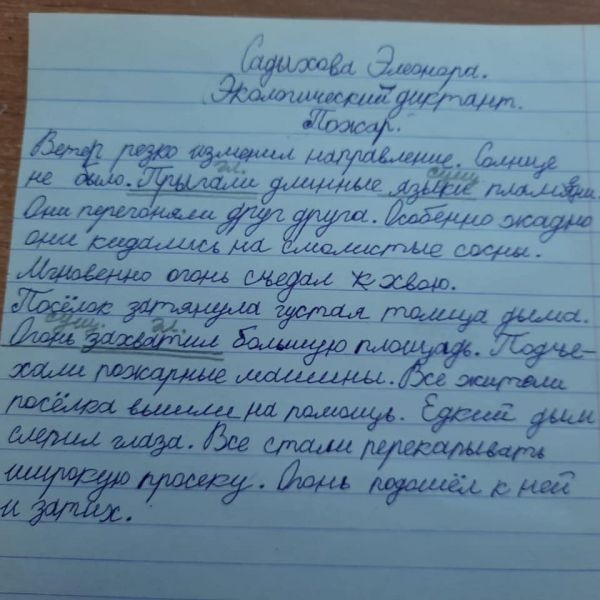 Садыхова Элеонора.
Экологический диктант.
Пожар.
Ветер резко изменил направление. Солнце
гл. сущ.
не было. Прыгали длинные языки пламени.
Они перегоняли друг друга. Особенно жадно
они кидались на смолистые сосны.
Мгновенно огонь съедал хвою.
Посёлок затянула густая толща дыма.
сущ. гл.
Огонь захватил большую площадь. Подъе-
хали пожарные машины. Все жители
посёлка вышли на помощь. Едкий дым
слепил глаза. Все стали перекапывать
широкую просеку. Огонь подошёл к ней
и затих.